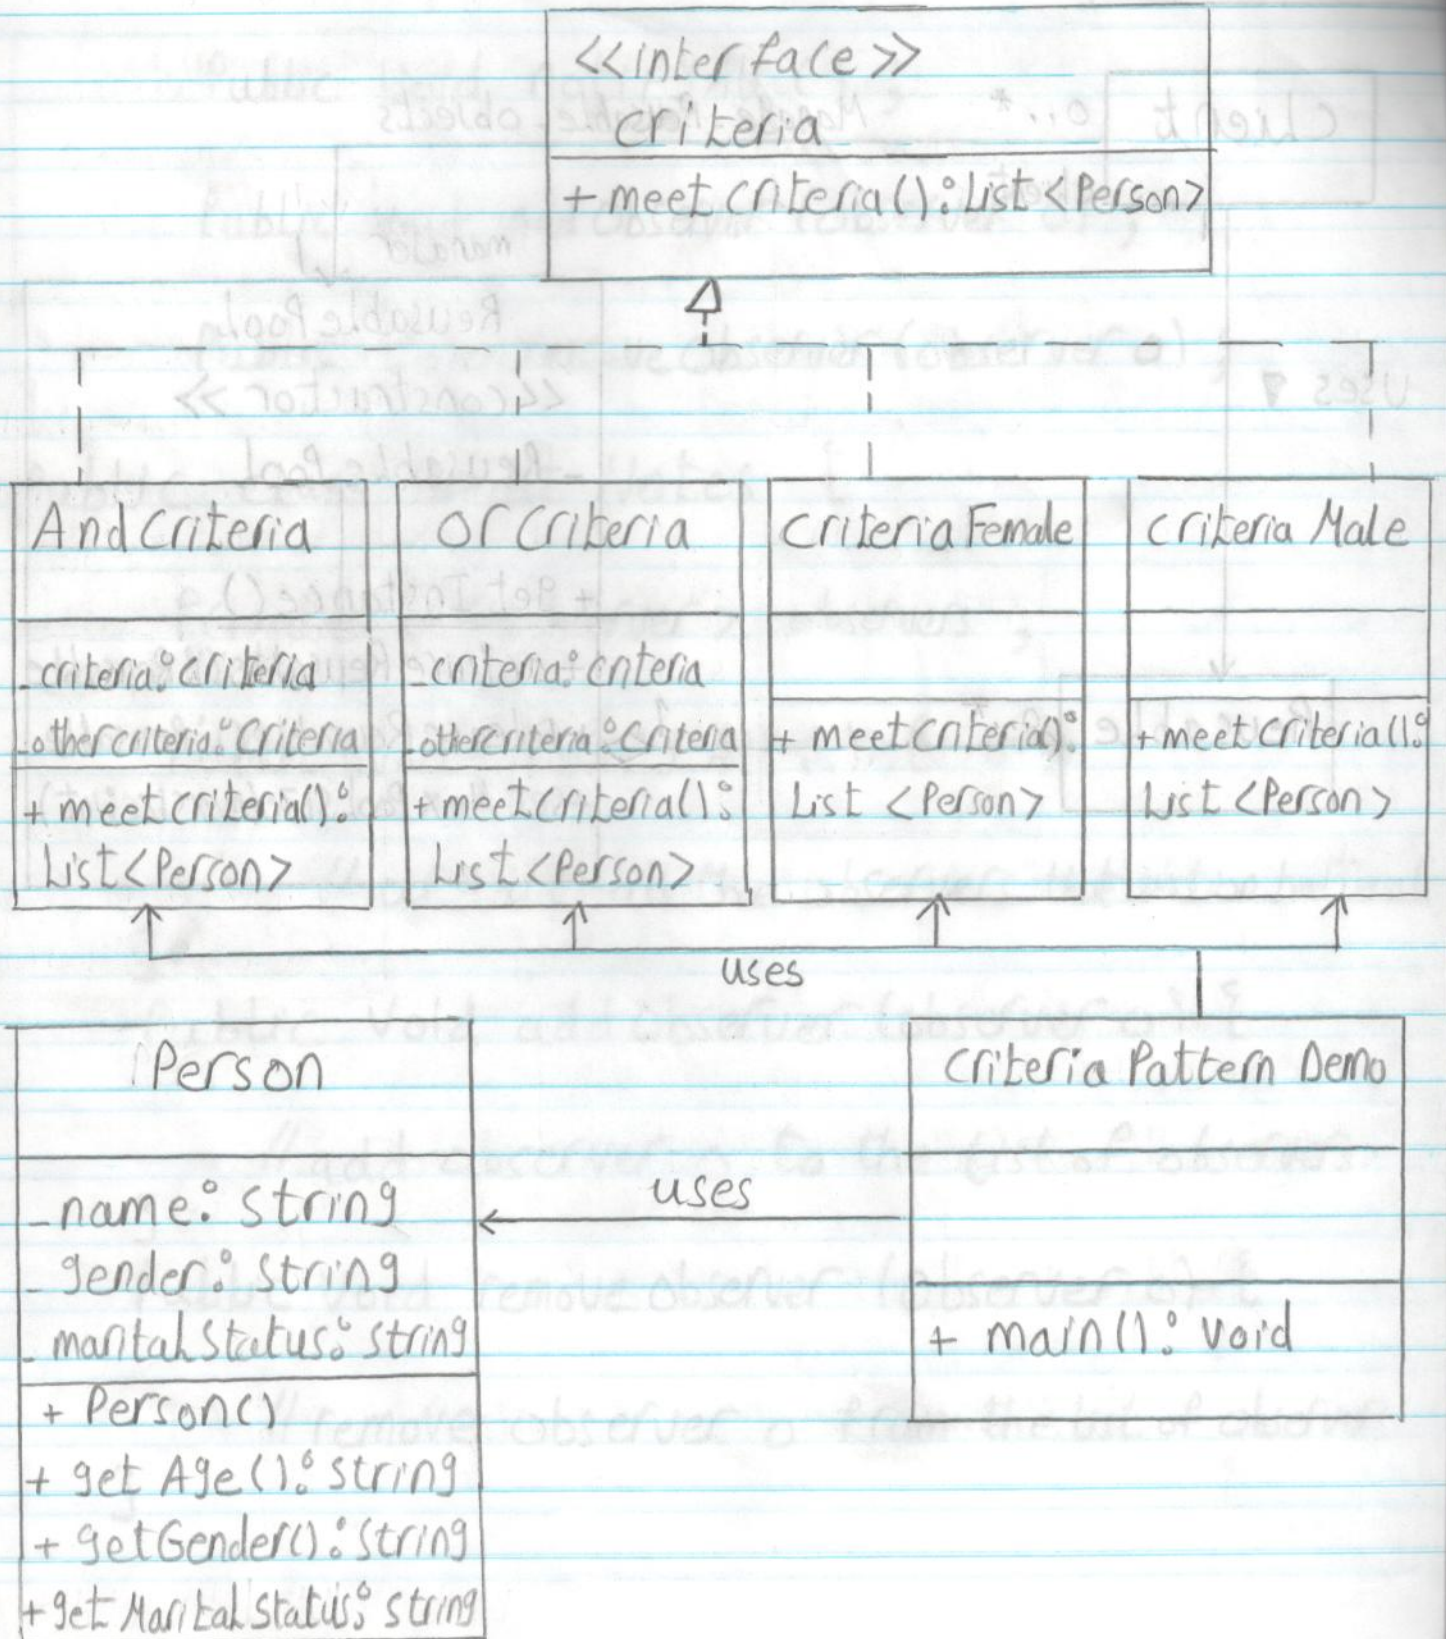 <<interface>>
criteria
+ meet criteria(): List <Person>
And Criteria
- criteria: Criteria
- othercriteria: Criteria
+ meet criteria():
List <Person>
Or Criteria
- criteria: criteria
- othercriteria: Criteria
+ meet criteria():
List <Person>
Criteria Female
+ meet criteria():
List <Person>
Criteria Male
+ meet criteria():
List <Person>
uses
Person
- name: string
- gender: string
- maritalstatus: string
+ Person()
+ get Age(): string
+ getGender(): string
+ get Marital status: string
uses
Criteria Pattern Demo
+ main(): void